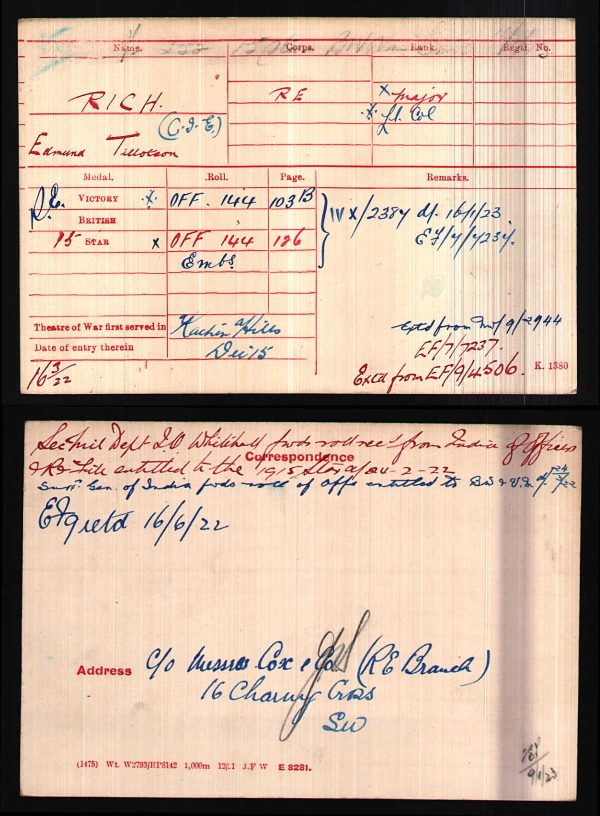 Name. Corps. Rank. Regtl. No.
RICH. RE x Major
(C.I.E) x Lt. Col
Edmund Tillotson
Medal. Roll. Page. Remarks.
VICTORY x OFF. 144 103B IV X/2387 d/. 16/1/23.
BRITISH EF/7/7237.
15 STAR x OFF 144 186
Embs.
Theatre of War first served in Kachin Hills
Date of entry therein Dec 15
16 3/22
Extd from EF/7/7237.
Extd from EF/9/4506. K. 1380
Sec Mil Dept I.O Whitehall fwds roll rec'd from India of Officers
Correspondence
entitled to the 1915 Star d/ 24-2-22
Surv. Gen. of India fwds roll of Offs entitled to BW & V.M
16/6/22
Address C/o Messrs Cox & Co (RE Branch)
16 Charing Cross
SW
(1475) Wt. W2793/RP8142 1,000m J.F W E 8281.
9/1/23